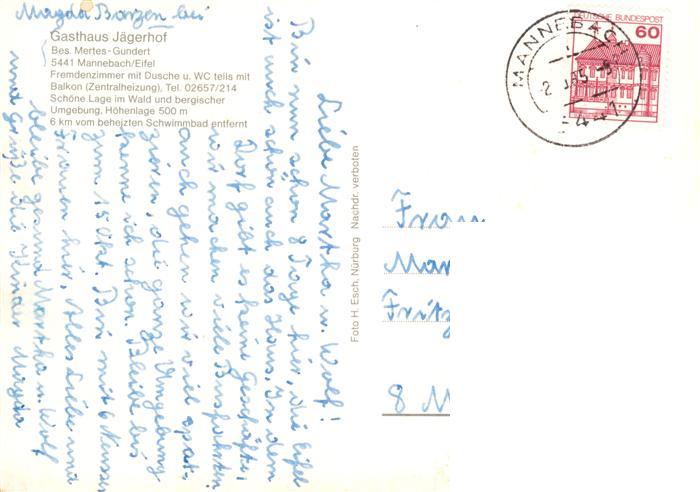 Magda Banzen bei
Gasthaus Jägerhof
Bes. Mertes-Gundert
5441 Mannebach/Eifel
Fremdenzimmer mit Dusche u. WC teils mit
Balkon (Zentralheizung), Tel. 02657/214
Schöne Lage im Wald und bergischer
Umgebung, Höhenlage 500 m
6 km vom beheizten Schwimmbad entfernt
Liebe Martha u. Wolf!
Bin nun schon 8 Tage hier, die Eifel
ist auch schön auch das Haus, In dem
Dorf gibt es keine Geschäfte,
wir machen viele Busfahrten
auch gehen wir viel spat-
zieren, die ganze Umgebung
kenne ich schon. Bleibe bis
zum 15 Okt. Bin mit 6 Neusser
Frauen hier, Alles Liebe und
bleibe gesund Martha u. Wolf
und grüße die Kinder Magda
Foto H. Esch, Nürburg Nachdr. verboten
DEUTSCHE BUNDESPOST
60
MANNEBACH
5441
Frau
Mar
Fritz
8 M